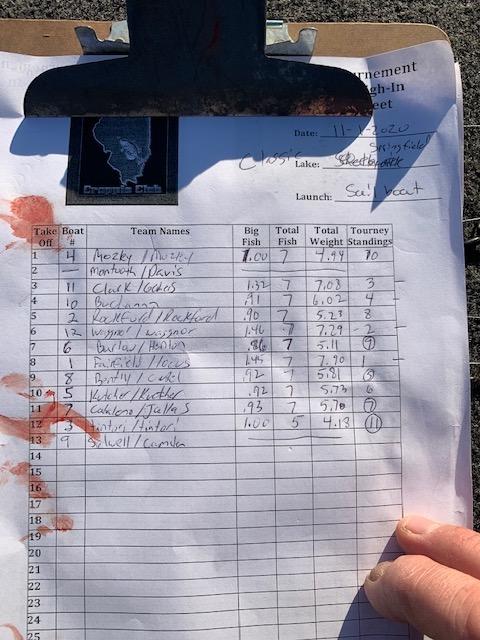 Tournement
Weigh-In
Sheet
Date: 11-1-2020
Springfield
Classic Lake:
Launch: Sailboat
Crappie Club
Take Off Boat # Team Names Big Fish Total Fish Total Weight Tourney Standings
1 4 Mozky / Mozky 1.00 7 4.99 10
2 — / Davis
3 11 Clark / 1.32 7 7.08 3
4 10 Buchanan .91 7 6.02 4
5 2 Rockford / Rockford .90 7 5.23 8
6 12 Wagner / Wagner 1.46 7 7.29 2
7 6 Barlow / Hanlon .86 7 5.11 9
8 1 Fairfield / 1.45 7 7.90 1
9 8 Bently / .92 7 5.81 5
10 5 Kutcher / Kutcher .92 7 5.73 6
11 7 / .93 7 5.70 7
12 3 Tintori / Tintori 1.00 5 4.13 11
13 9 / Camden
14
15
16
17
18
19
20
21
22
23
24
25